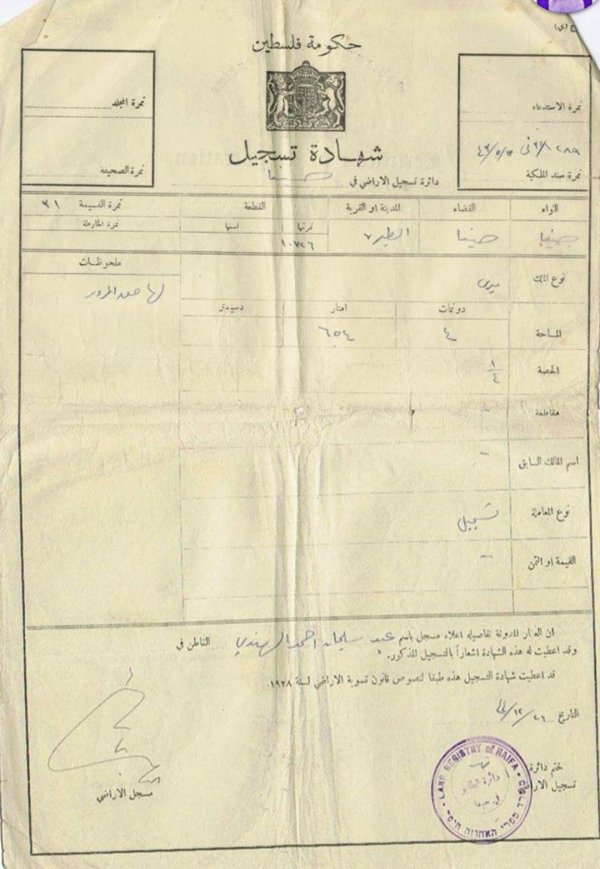 حكومة فلسطين
نمرة المجلد
نمرة الاستدعاء
شهادة تسجيل
دائرة تسجيل الاراضي في حيفا
نمرة الصحيفة
نمرة سند الملكية
اللواء
القضاء
المدينة او القرية
القطعة
نمرة القسيمة ٣١
نمرتها
اسمها
نمرة الخارطة
حيفا
حيفا
الطيره
١٠٧٢٦
ملحوظات
نوع الملك
ميري
لها حق المرور
دونمات
امتار
دسيمتر
المساحة
٤
٦٥٤
الحصة
١/٤
مقاطعة
اسم المالك السابق
نوع المعاملة
تسجيل
القيمة او الثمن
ان العقار المدونة تفاصيله اعلاه مسجل باسم عبد سليمان احمد الهندي القاطن في
وقد اعطيت له هذه الشهادة اشعاراً بالتسجيل المذكور.
قد اعطيت شهادة التسجيل هذه طبقا لنصوص قانون تسوية الاراضي لسنة ١٩٢٨
التاريخ
ختم دائرة
تسجيل الار
مسجل الاراضي
LAND REGISTRY of HAIFA
ספרי האחוזה חיפה